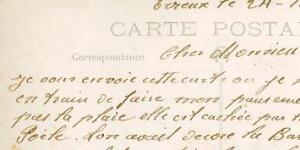 Evreux le 24-1
CARTE POSTA
Correspondance
Cher Monsieu
je vous envoie cette carte ou je
en train de faire mon panseme
pas la plaie elle est cachée par
Poële. L'on avait decore la Bar